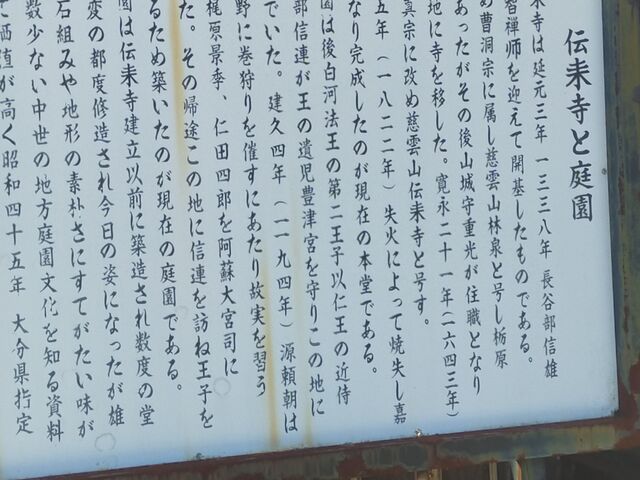 伝来寺と庭園
来寺は延元三年 一三三八年 長谷部信雄
智禅師を迎えて開基したものである。
め曹洞宗に属し慈雲山林泉と号し栃原
あったがその後山城守重光が住職となり
地に寺を移した。寛永二十一年(一六四三年)
真宗に改め慈雲山伝来寺と号す。
五年(一八二二年)失火によって焼失し嘉
なり完成したのが現在の本堂である。
園は後白河法王の第二王子以仁王の近侍
部信連が王の遺児豊津宮を守りこの地に
でいた。建久四年(一一九四年)源頼朝は
野に巻狩りを催すにあたり故実を習う
梶原景季、仁田四郎を阿蘇大宮司に
た。その帰途この地に信連を訪ね王子を
るため築いたのが現在の庭園である。
園は伝来寺建立以前に築造され数度の堂
変の都度修造され今日の姿になったが雄
石組みや地形の素朴さにすてがたい味が
数少ない中世の地方庭園文化を知る資料
て価値が高く昭和四十五年 大分県指定